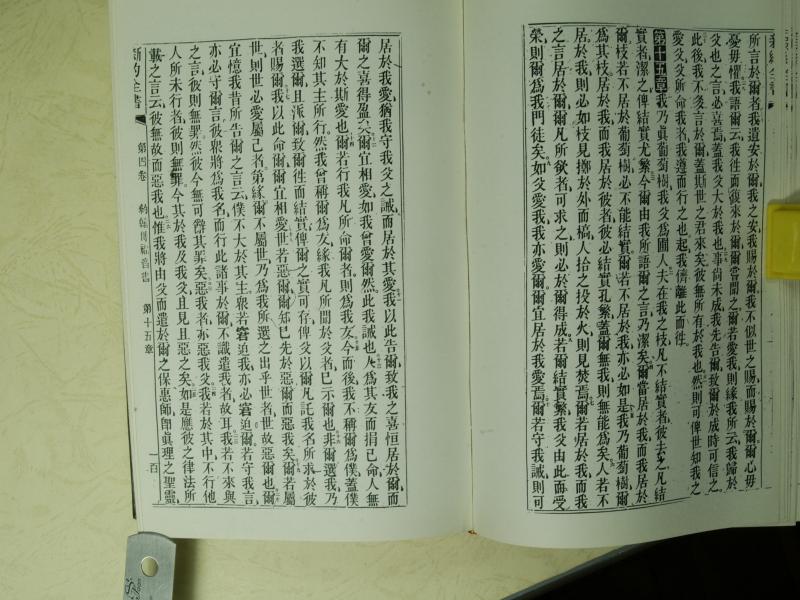 所言於爾者我遺安於爾我之安我賜於爾我不似世之賜而賜於爾心毋
憂毋懼我語爾云我徃而復來於爾爾嘗聞之爾若愛我則緣我所云我歸於
父也之言必喜焉蓋我父大於我也事尚未成我先告爾致爾於成時可信之
此後我不多言於爾蓋斯世之君來矣彼無所有於我也然則可俾世知我之
愛父父所命我者我遵而行之也起我儕離此而徃
第十五章我乃眞葡萄樹我父為圃人夫在我之枝凡不結實者彼去之凡結
實者潔之俾結實尤繁今爾由我所語爾之言乃潔矣爾當居於我而我居於
爾枝若不居於葡萄樹必不能結實爾若不居於我亦必如是我乃葡萄樹爾
為其枝居於我而我居於彼者彼必結實孔繁蓋爾無我則無能為矣人若不
居於我則必如枝見擲於外而槁人拾之投於火則見焚焉爾若居於我而我
之言居於爾爾凡所欲者可求之則必於爾得成若爾結實繁我父由此而受
榮則爾為我門徒矣如父愛我我亦愛爾爾宜居於我愛焉爾若守我誡則可
居於我愛猶我守我父之誡而居於其愛我以此告爾致我之喜恒居於爾而
爾之喜得盈矣爾宜相愛如我曾愛爾然此我誡也人為其友而捐己命人無
有大於斯愛也爾若行我凡所命爾者則為我友今而後我不稱爾為僕蓋僕
不知其主所行然我曾稱爾為友緣我凡所聞於父者已示爾也非爾選我乃
我選爾且派爾致爾徃而結實俾爾之實可存俾父以爾凡託我名所求於彼
者賜爾我以此命爾爾宜相愛世若惡爾爾知已先於惡爾而惡我矣爾若屬
世則世必愛屬己者第緣爾不屬世乃為我所選之出乎世者世故惡爾也爾
宜憶我昔所告爾之言云僕不大於其主衆若窘迫我亦必窘迫爾若守我言
亦必守爾言彼衆將為我名而行此諸事於爾不識遣我者故耳我若不來與
之言彼則無罪然彼今無可辭其罪矣惡我者亦惡我父我若於其中不行他
人所未行者彼則無罪今其於我及我父且見且惡之矣如是應彼之律法所
載之言云彼無故而惡我也惟我將由父而遣於爾之保惠師卽眞理之聖靈
新約全書 第四卷 約翰傳福音書 第十五章 一百